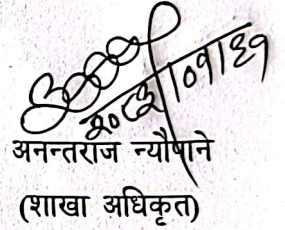 २०८३।०१।३१
अनन्तराज न्यौपाने
(शाखा अधिकृत)